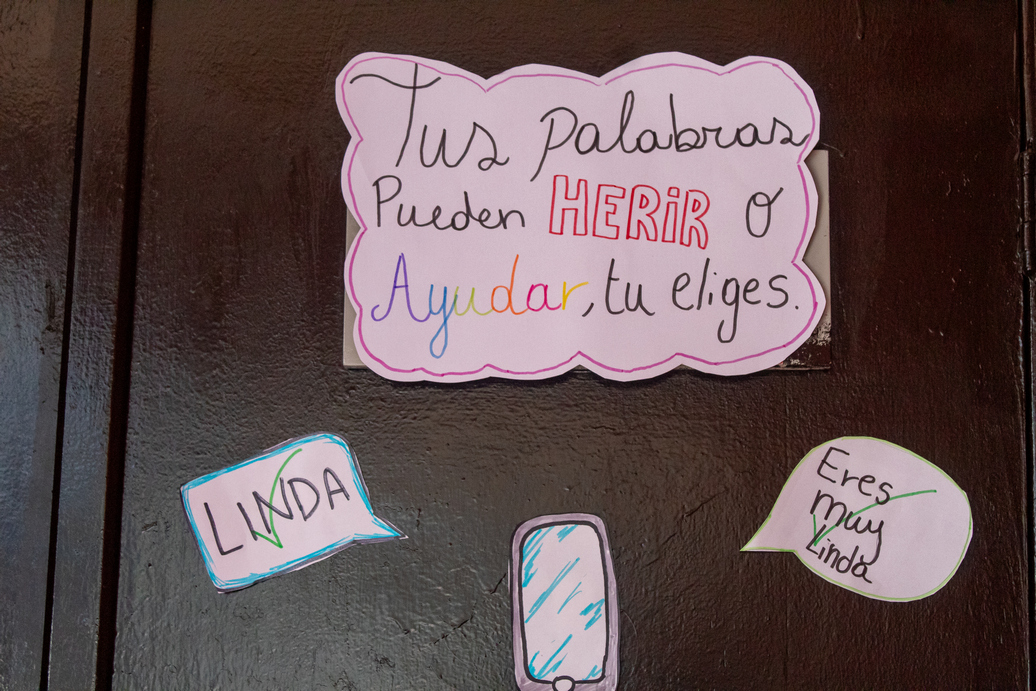 Tus palabras
Pueden HERiR o
Ayudar, tu eliges.
LINDA
Eres
muy
Linda